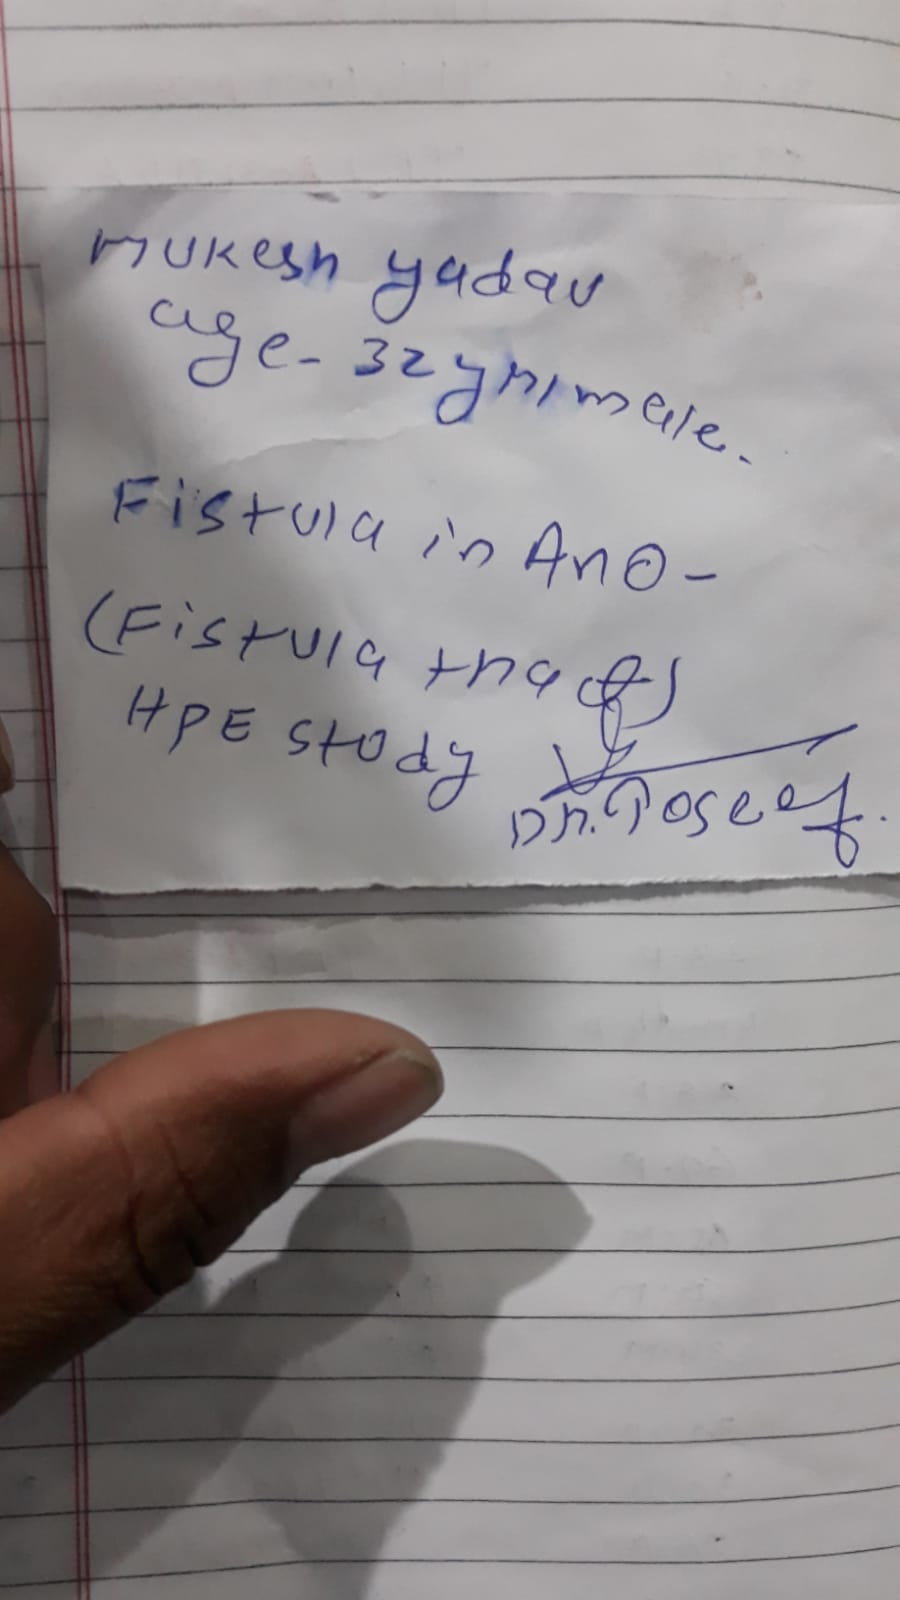 Mukesh yadav
age- 32 yr/male.
Fistula in Ano-
(Fistula tract)
HPE study
Dr. Toseef.